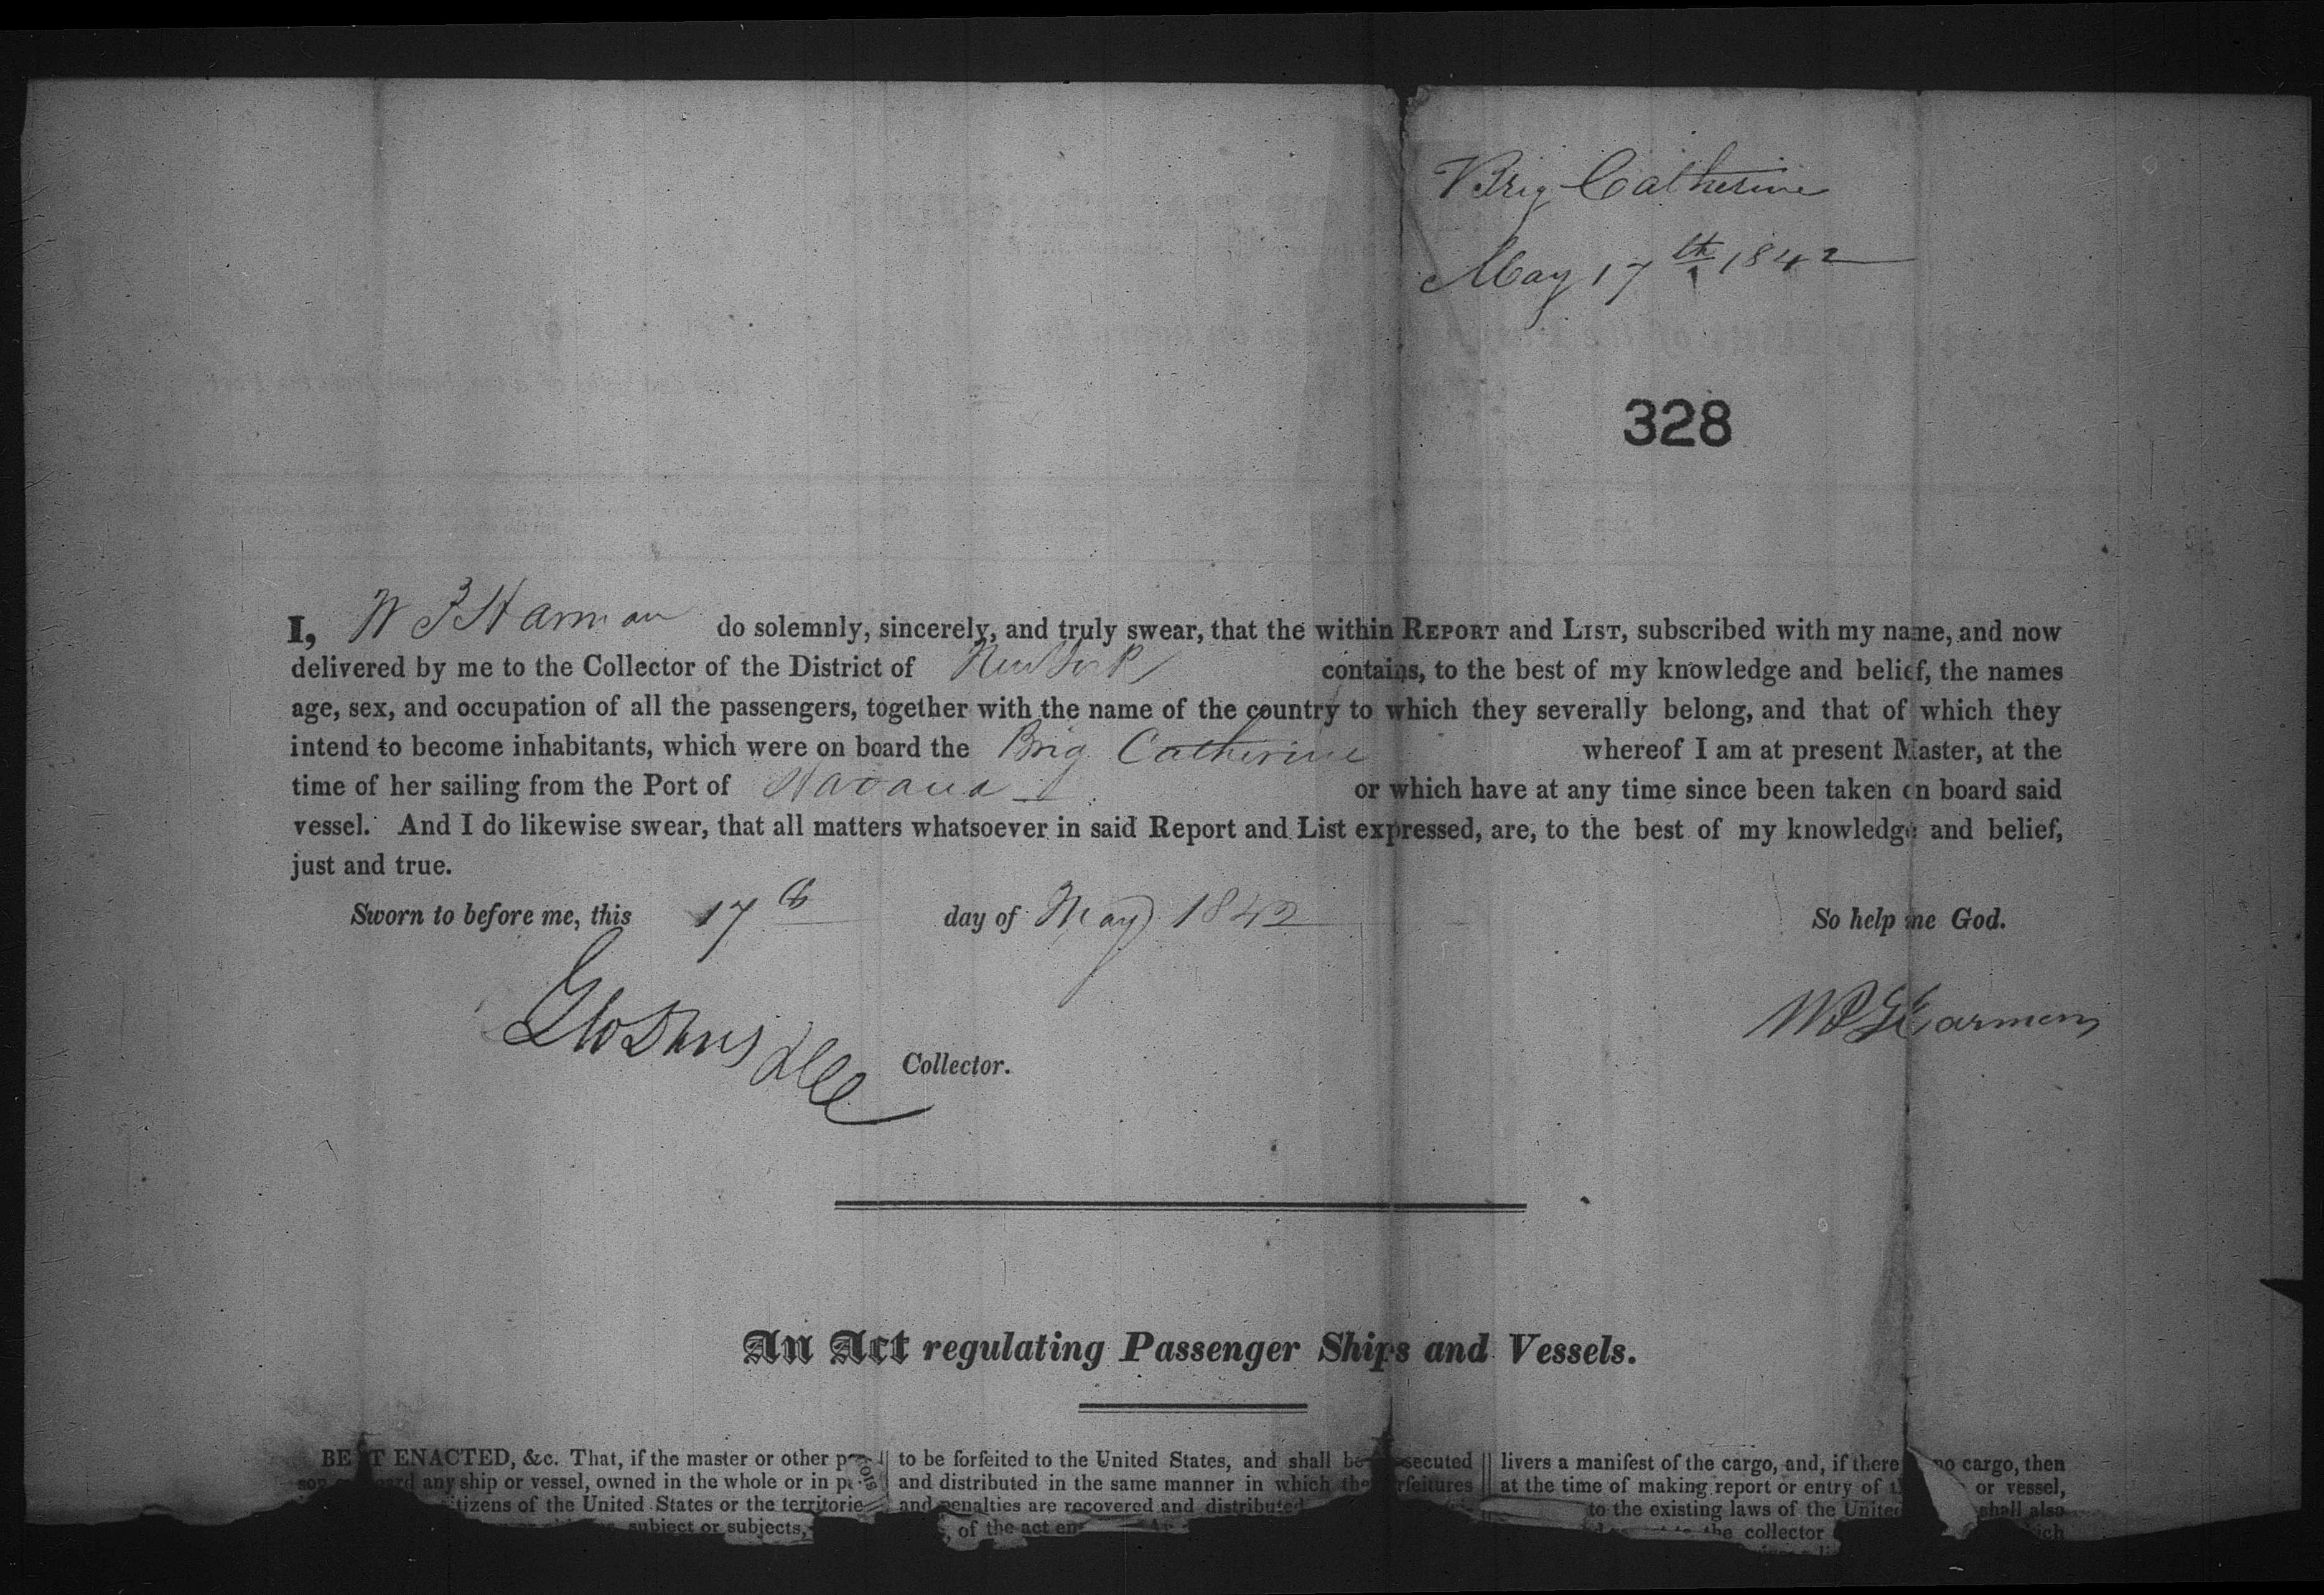 Brig Catherine
May 17th 1842
328
I, W F Harman do solemnly, sincerely, and truly swear, that the within REPORT and LIST, subscribed with my name, and now
delivered by me to the Collector of the District of New York contains, to the best of my knowledge and belief, the names
age, sex, and occupation of all the passengers, together with the name of the country to which they severally belong, and that of which they
intend to become inhabitants, which were on board the Brig Catherine whereof I am at present Master, at the
time of her sailing from the Port of Havana or which have at any time since been taken on board said
vessel. And I do likewise swear, that all matters whatsoever in said Report and List expressed, are, to the best of my knowledge and belief,
just and true.
Sworn to before me, this 17th day of May 1842 So help me God.
Collector.
An Act regulating Passenger Ships and Vessels.
BE IT ENACTED, &c. That, if the master or other
any ship or vessel, owned in the whole or in
of the United States or the
subject or subjects,
to be forfeited to the United States, and shall be
and distributed in the same manner in which the
and penalties are recovered and distributed
of the act
livers a manifest of the cargo, and, if there no cargo, then
at the time of making report or entry of or vessel,
to the existing laws of the United shall also
the collector